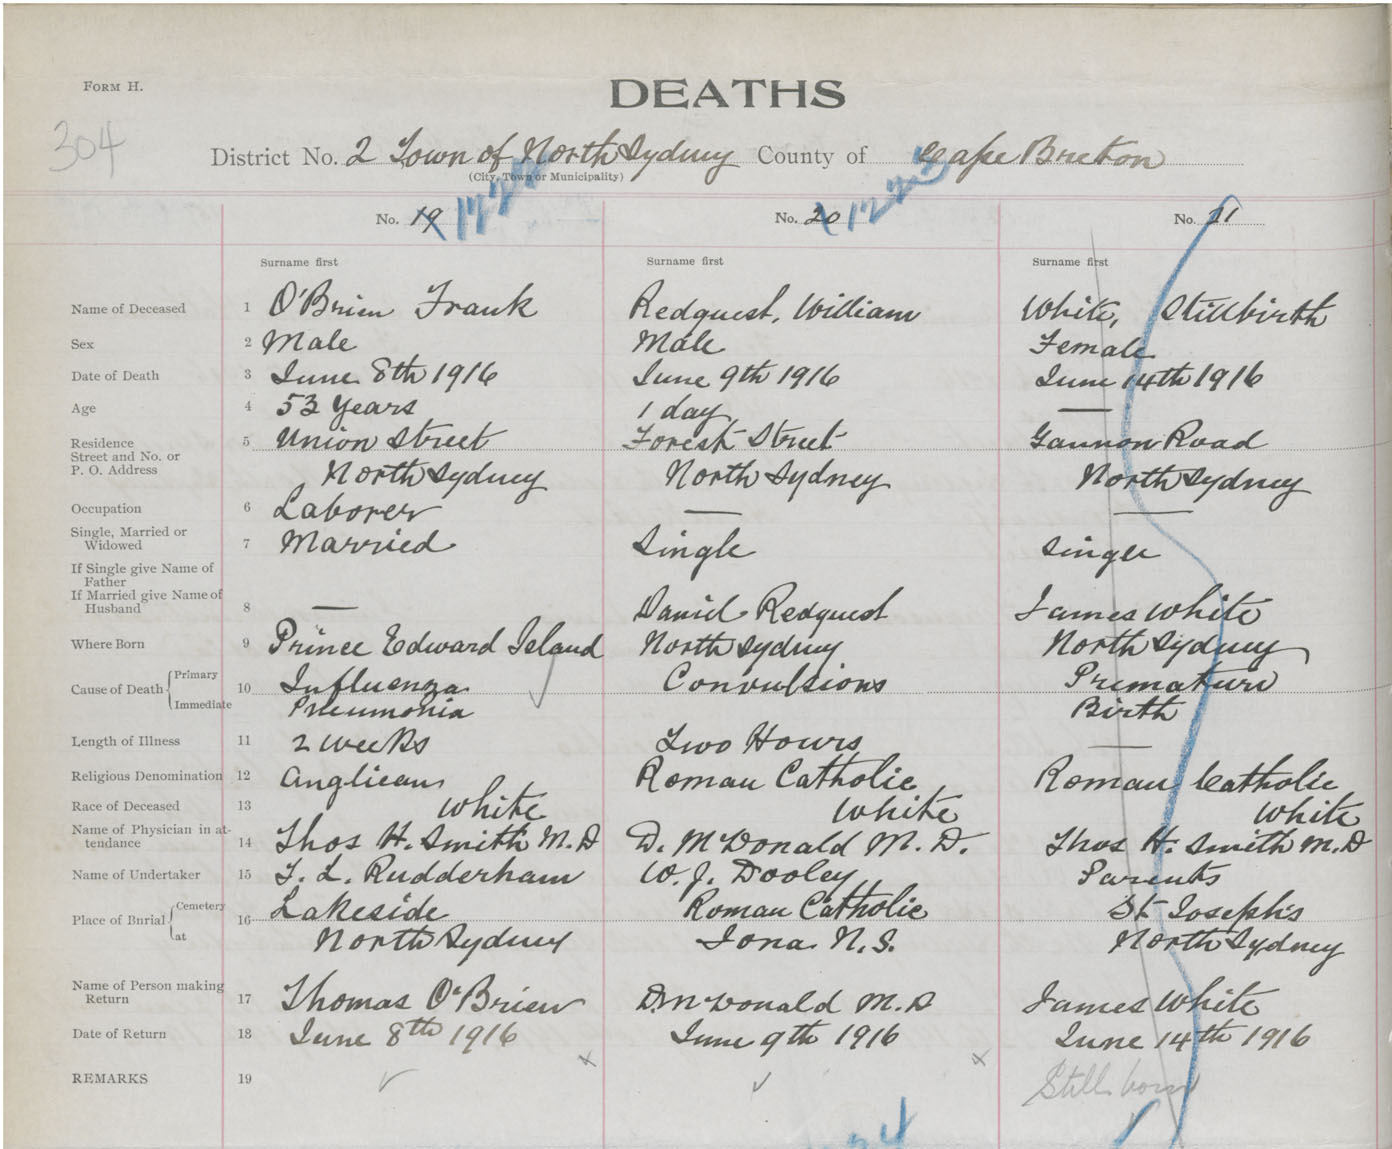 FORM H.
DEATHS
304
District No. 2 Town of North Sydney County of Cape Breton
(City, Town or Municipality)
No. 19 No. 20 No. 21
Surname first Surname first Surname first
Name of Deceased 1 O'Brien Frank Redquest, William White, Stillbirth
Sex 2 Male Male Female
Date of Death 3 June 8th 1916 June 9th 1916 June 14th 1916
Age 4 53 Years 1 day —
Residence 5 Union Street Forest Street Gannon Road
Street and No. or
P. O. Address North Sydney North Sydney North Sydney
Occupation 6 Laborer — —
Single, Married or
Widowed 7 Married Single Single
If Single give Name of
Father
If Married give Name of
Husband 8 — Daniel Redquest James White
Where Born 9 Prince Edward Island North Sydney North Sydney
Cause of Death { Primary 10 Influenza Convulsions Premature
Immediate Pneumonia Birth
Length of Illness 11 2 weeks Two Hours —
Religious Denomination 12 Anglican Roman Catholic Roman Catholic
Race of Deceased 13 White White White
Name of Physician in at-
tendance 14 Thos H. Smith M.D D. McDonald M.D. Thos H. Smith M.D
Name of Undertaker 15 T. L. Rudderham W. J. Dooley Parents
Place of Burial { Cemetery 16 Lakeside Roman Catholic St. Joseph's
at North Sydney Iona N.S. North Sydney
Name of Person making
Return 17 Thomas O'Brien D. McDonald M.D James White
Date of Return 18 June 8th 1916 June 9th 1916 June 14th 1916
REMARKS 19 Still born